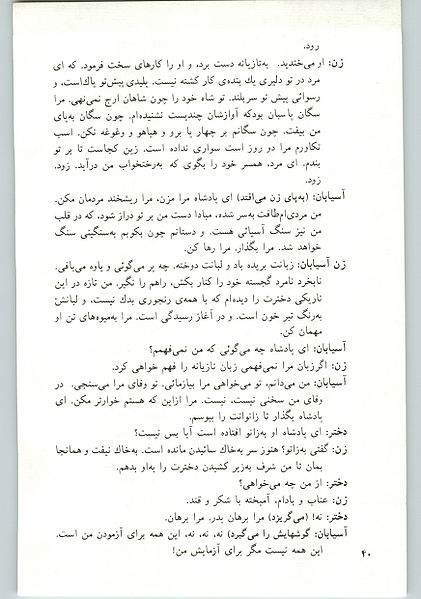 رود.
زن: او می‌خندید. به‌تازیانه دست برد، و او را کارهای سخت فرمود. که ای
مرد در تو دلیری یك بنده‌ی کار کشته نیست. پلیدی پیش‌تو پاك‌است، و
رسوائی پیش تو سربلند. تو شاه خود را چون شاهان ارج نمی‌نهی. مرا
سگان پاسبان بودکه آوازشان چندیست نشنیده‌ام. چون سگان به‌پای
من بیفت. چون سگانم بر چهار پا برو و هیاهو و وغوغه نکن. اسب
تکاورم مرا دو روز است سواری نداده است. زین کجاست تا بر تو
بندم. ای مرد، همسر خود را بگوی که به‌رختخواب من درآید. زود.
زود.
آسیابان: (به‌پای زن می‌افتد) ای پادشاه مرا مزن، مرا ریشخند مردمان مکن.
من مردی‌ام‌طاقت به‌سر شده، مبادا دست من بر تو دراز شود، که در قلب
من نیز سنگ آسیائی هست. و دستانم چون بکوبم به‌سنگینی سنگ
خواهد شد. مرا بگذار. مرا رها کن.
زن آسیابان: زبانت بریده باد و لبانت دوخته. چه پر می‌گوئی و یاوه می‌بافی.
نابخرد نامرد گجسته خود را کنار بکش، راهم را نگیر. من تازه در این
تاریکی دخترت را دیده‌ام که با همه‌ی رنجوری بدك نیست، و لبانش
به‌رنگ تیر خون است. و در آغاز رسیدگی است. مرا به‌میوه‌های تن او
مهمان کن.
آسیابان: ای پادشاه چه می‌گوئی که من نمی‌فهمم؟
زن: اگرزبان مرا نمی‌فهمی زبان تازیانه را فهم خواهی کرد.
آسیابان: من می‌دانم، تو می‌خواهی مرا بیازمائی. تو وفای مرا می‌سنجی. در
وفای من سخنی نیست، نیست. مرا ازاین که هستم خوارتر مکن. ای
پادشاه بگذار تا زانوانت را ببوسم.
دختر: ای پادشاه او به‌زانو افتاده است آیا بس نیست؟
زن: گفتی به‌زانو؟ هنوز سر به‌خاك سائیدن مانده است. به‌خاك نیفت و همانجا
بمان تا من شرف به‌زیر کشیدن دخترت را به‌او بدهم.
دختر: از من چه می‌خواهی؟
زن: عناب و بادام، آمیخته با شکر و قند.
دختر: نه! (می‌گریزد) مرا برهان پدر. مرا برهان.
آسیابان: گوشهایش را می‌گیرد) نه، نه، نه، این همه برای آزمودن من است.
این همه نیست مگر برای آزمایش من!
۴۰